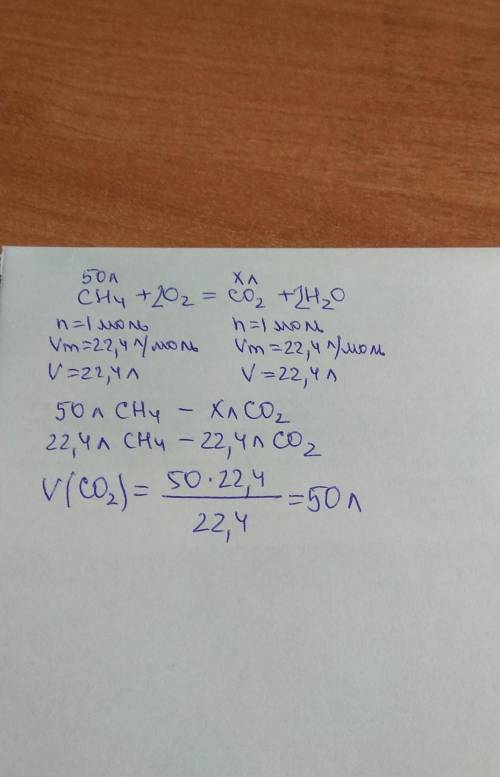 50л хл
CH4 + 2O2 = CO2 + 2H2O
n=1 моль n=1 моль
Vm=22,4 л/моль Vm=22,4 л/моль
V=22,4 л V=22,4 л
50л CH4 – хл CO2
22,4л CH4 – 22,4л CO2
V(CO2) = 50·22,4 / 22,4 = 50 л